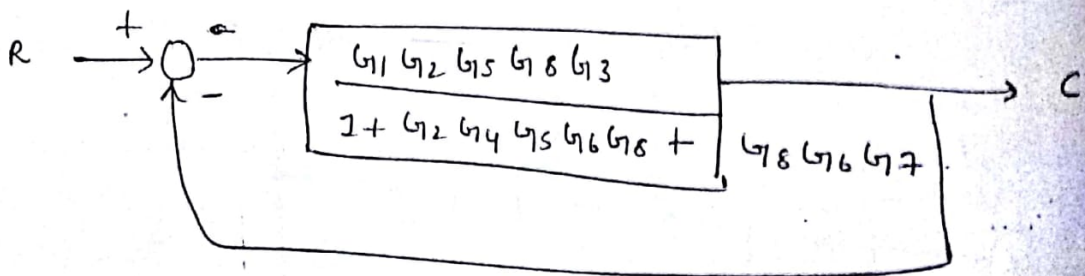 +
R
-
G1 G2 G5 G8 G3
C
1 + G2 G4 G5 G6 G8 + G8 G6 G7